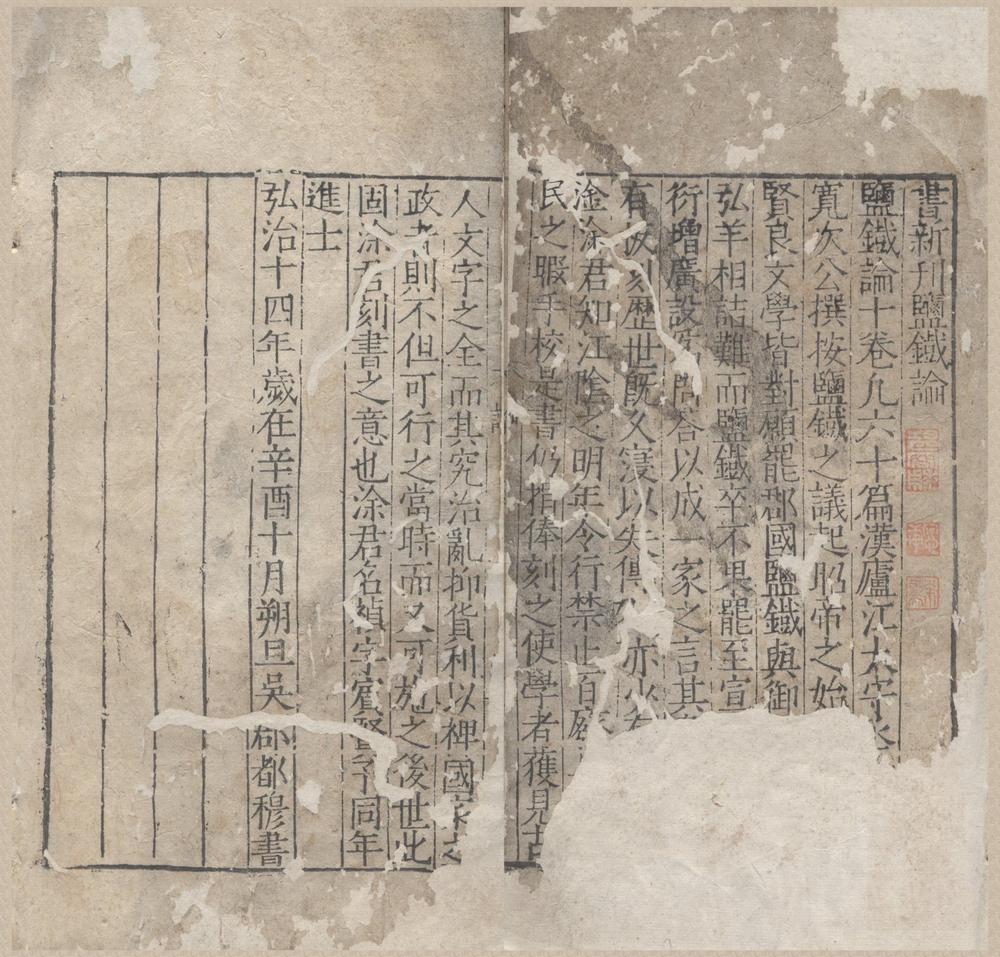 書新刊鹽鐵論
鹽鐵論十卷凡六十篇漢廬江太守
寬次公撰按鹽鐵之議起昭帝之始
賢良文學皆對願罷郡國鹽鐵與御
弘羊相詰難而鹽鐵卒不果罷至宣
衍增廣設問答以成一家之言其
有板刻歷世既久寖以失傳亦少有
淦涂君知江陰之明年令行禁止百廢
民之暇手校是書仍捐俸刻之使學者獲見古
人文字之全而其究治亂抑貨利以裨國家之
政者則不但可行之當時而又可施之後世此
固涂君刻書之意也涂君名禎字賓賢予同年
進士
弘治十四年歲在辛酉十月朔旦吳郡都穆書